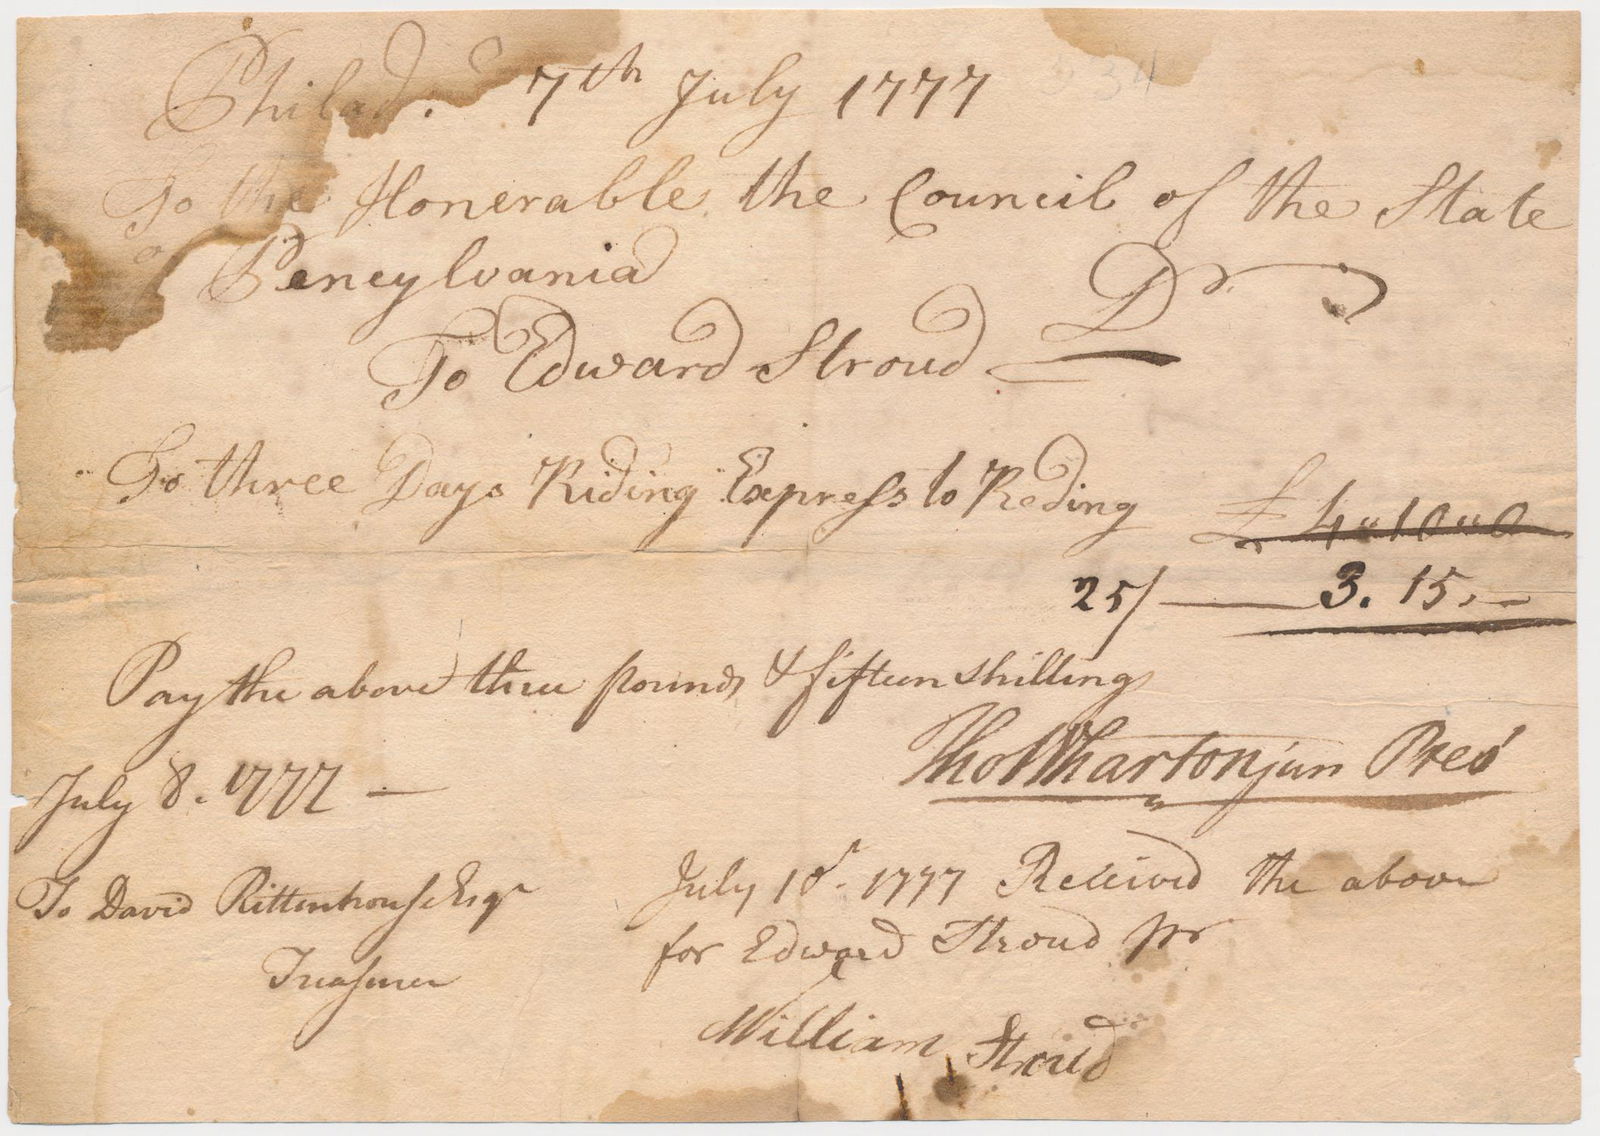 Philad.ª 7th July 1777
To the Honerable the Council of the State
of Peneylvania Dr.
To Edward Stroud
To three Days Riding Express to Reding £ 4"10"0
25/ 3. 15. —
Pay the above three pounds & fifteen shillings
Tho Wharton jun Pres
July 8. 1777 —
To David Rittenhouse Esqr
Treasurer
July 10. 1777 Received the above
for Edward Stroud pr
William Stroud